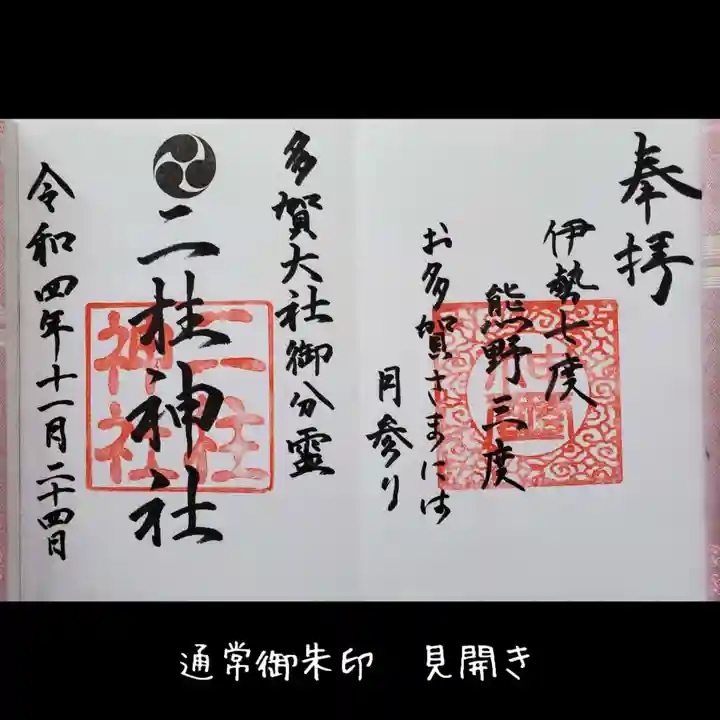 奉拝
伊勢七度
熊野三度
お多賀さまには
月参り
多賀大社御分霊
二柱神社
二柱
神社
令和四年十一月二十四日
通常御朱印　見開き